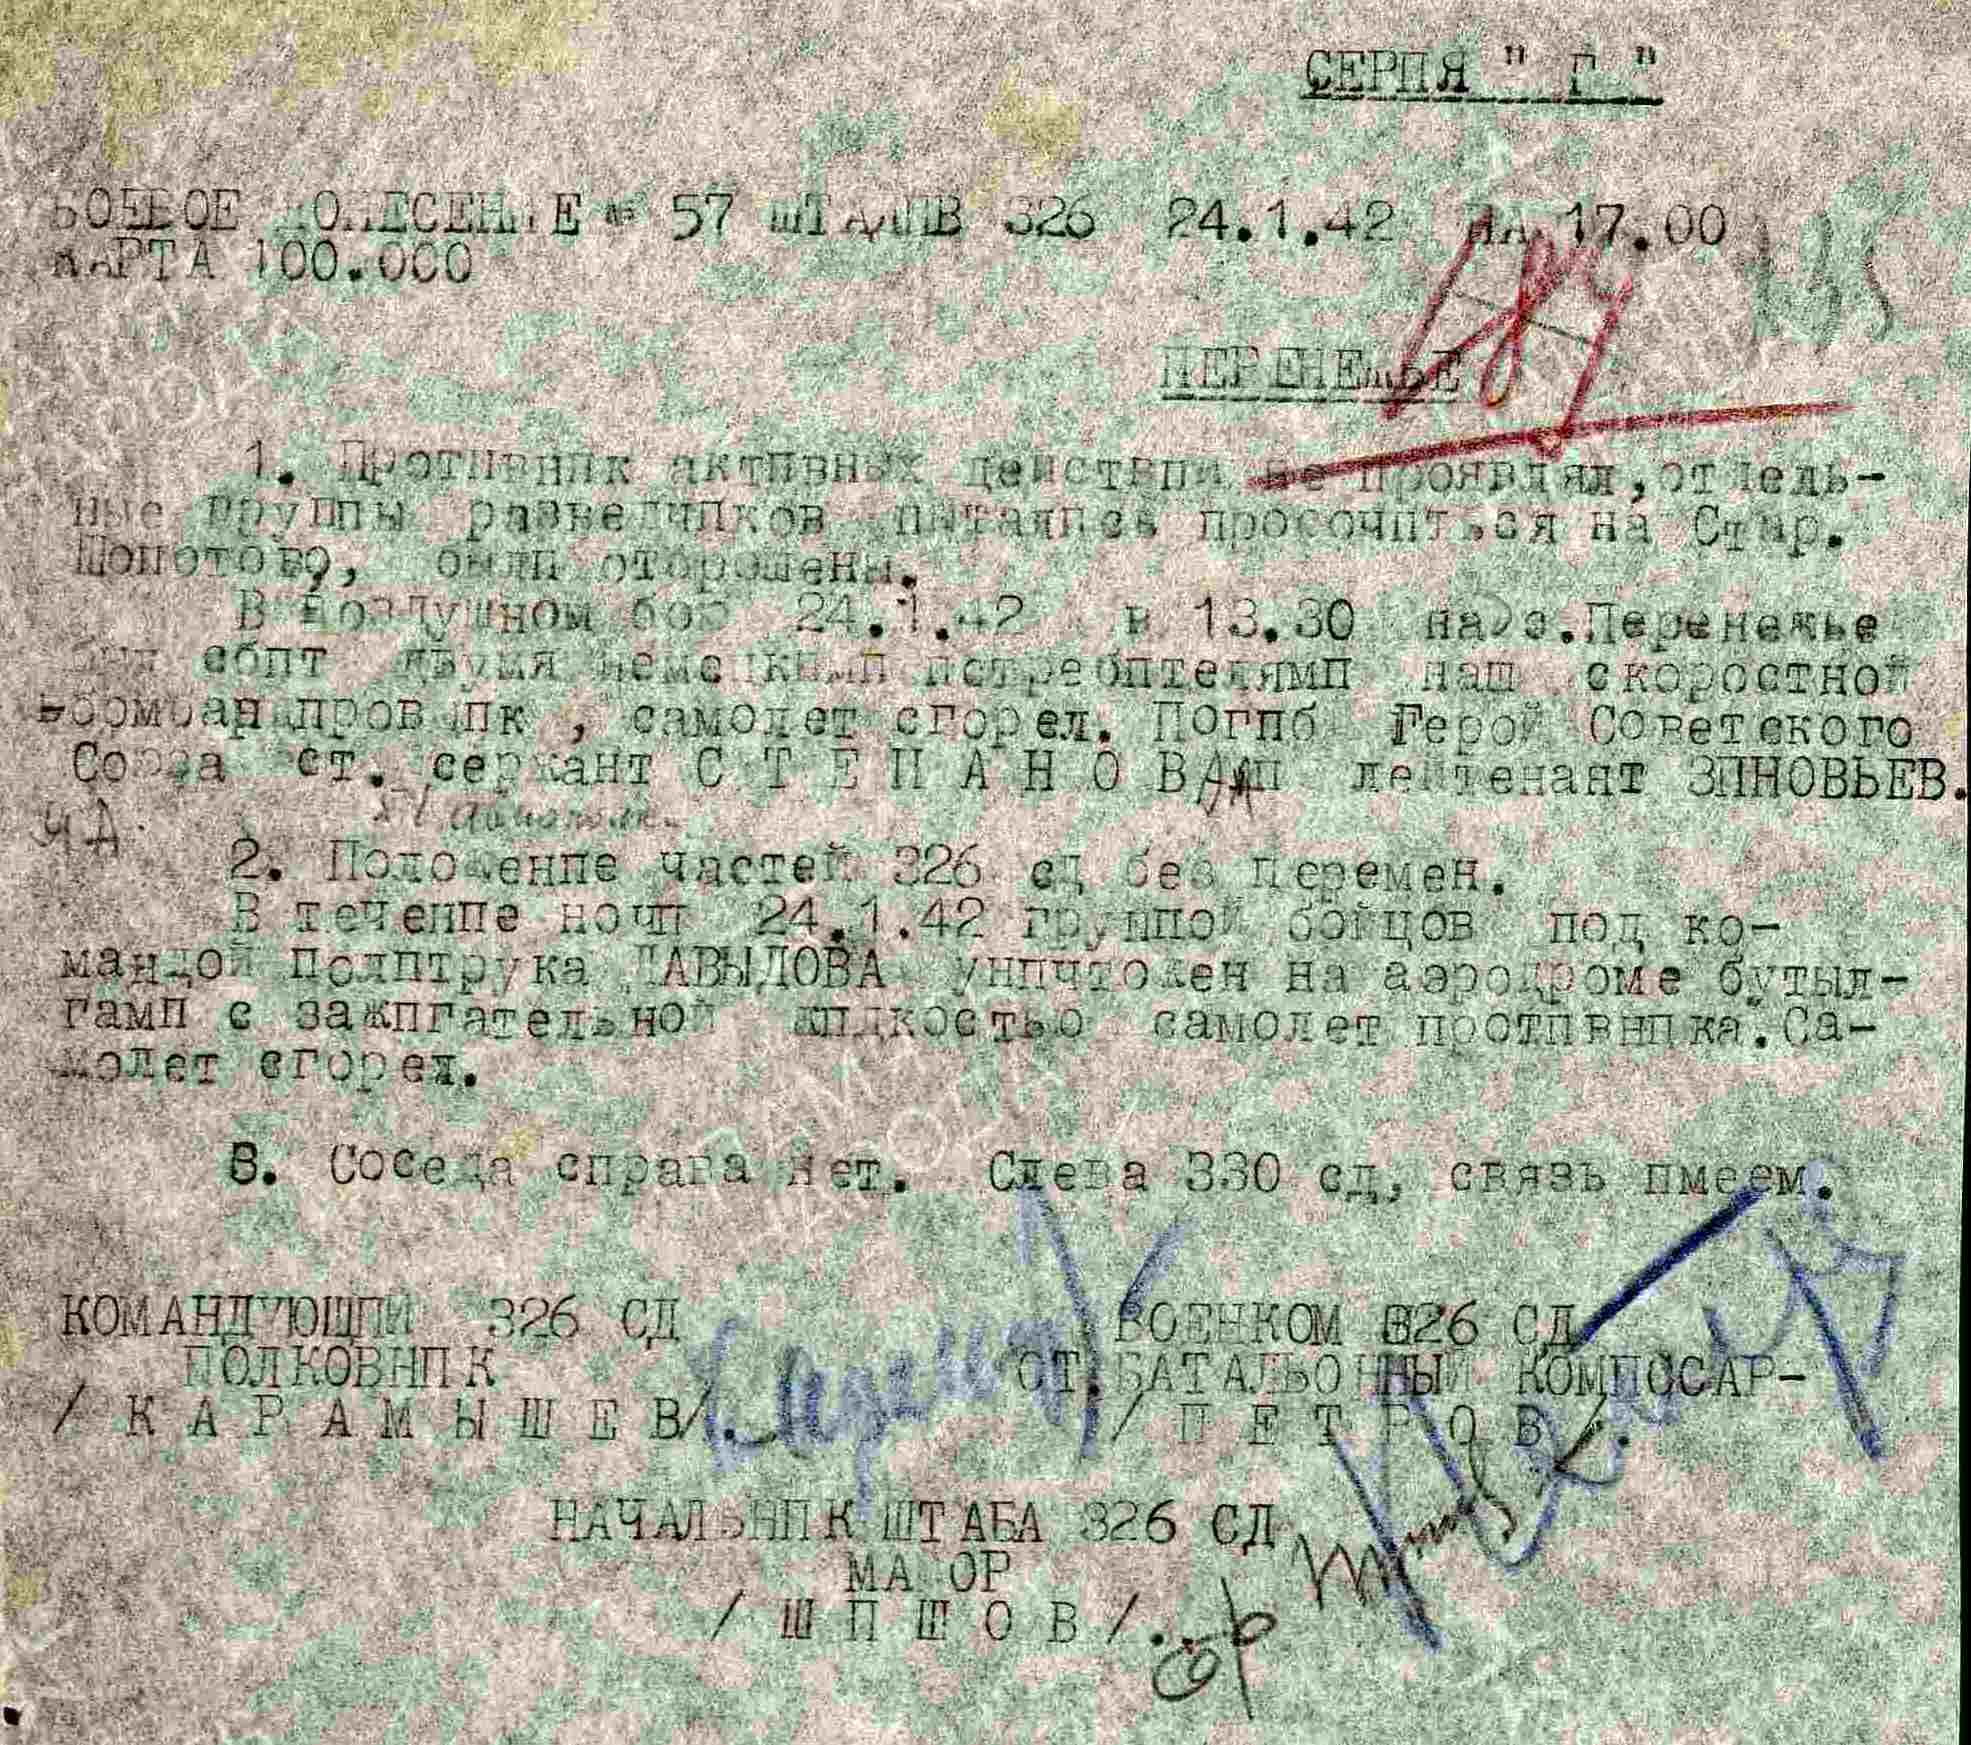 СЕРИЯ " Г "
БОЕВОЕ ДОНЕСЕНИЕ № 57 ШТАДИВ 326 24.1.42 НА 17.00
КАРТА 100.000
ПЕРЕНЕЖЬЕ
1. Противник активных действий не проявлял, отдель-
ные группы разведчиков пытались просочиться на Стар.
Шопотово, были оторошены.
В воздушном бою 24.1.42 в 13.30 над с.Перенежье
был сбит двумя немецкими истребителями наш скоростной
бомбандировщик , самолет сгорел. Погиб Герой Советского
Союза ст. сержант С Т Е П А Н О В и лейтенант ЗИНОВЬЕВ.
2. Положение частей 326 сд без перемен.
В течение ночи 24.1.42 группой бойцов под ко-
мандой политрука ДАВЫДОВА уничтожен на аэродроме бутыл-
гами с зажигательной жидкостью самолет противника. Са-
молет сгорел.
3. Соседа справа нет. Слева 330 сд, связь имеем.
КОМАНДУЮЩИЙ 326 СД ВОЕНКОМ 326 СД
ПОЛКОВНИК СТ.БАТАЛЬОННЫЙ КОМИССАР-
/ К А Р А М Ы Ш Е В/. / П Е Т Р О В /.
НАЧАЛЬНИК ШТАБА 326 СД
МАЙОР
/ Ш И Ш О В /.